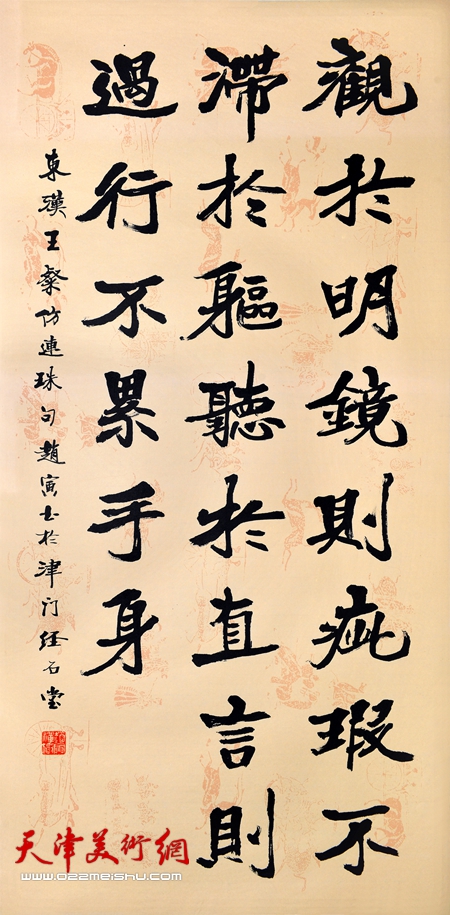 觀於明鏡則疵瑕不
滯於軀聽於直言則
過行不累乎身
東漢王粲仿連珠句趙寅书於津门经石堂
天津美術網
www.022meishu.com